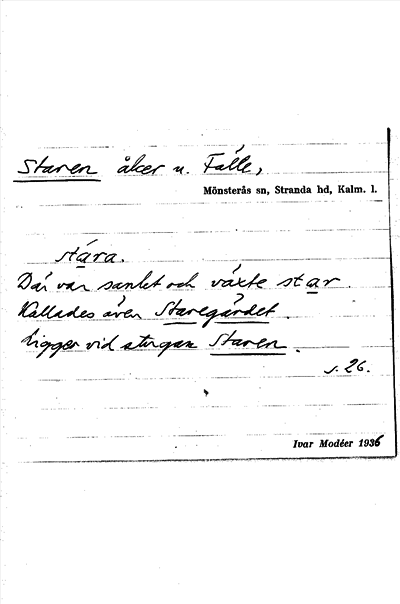 Staren åker u. Fålle,
Mönsterås sn, Stranda hd, Kalm. l.
stára.
Där var sankt och växte star.
Kallades även Staregärdet.
Ligger vid stugan Staren.
s. 26.
Ivar Modéer 1936